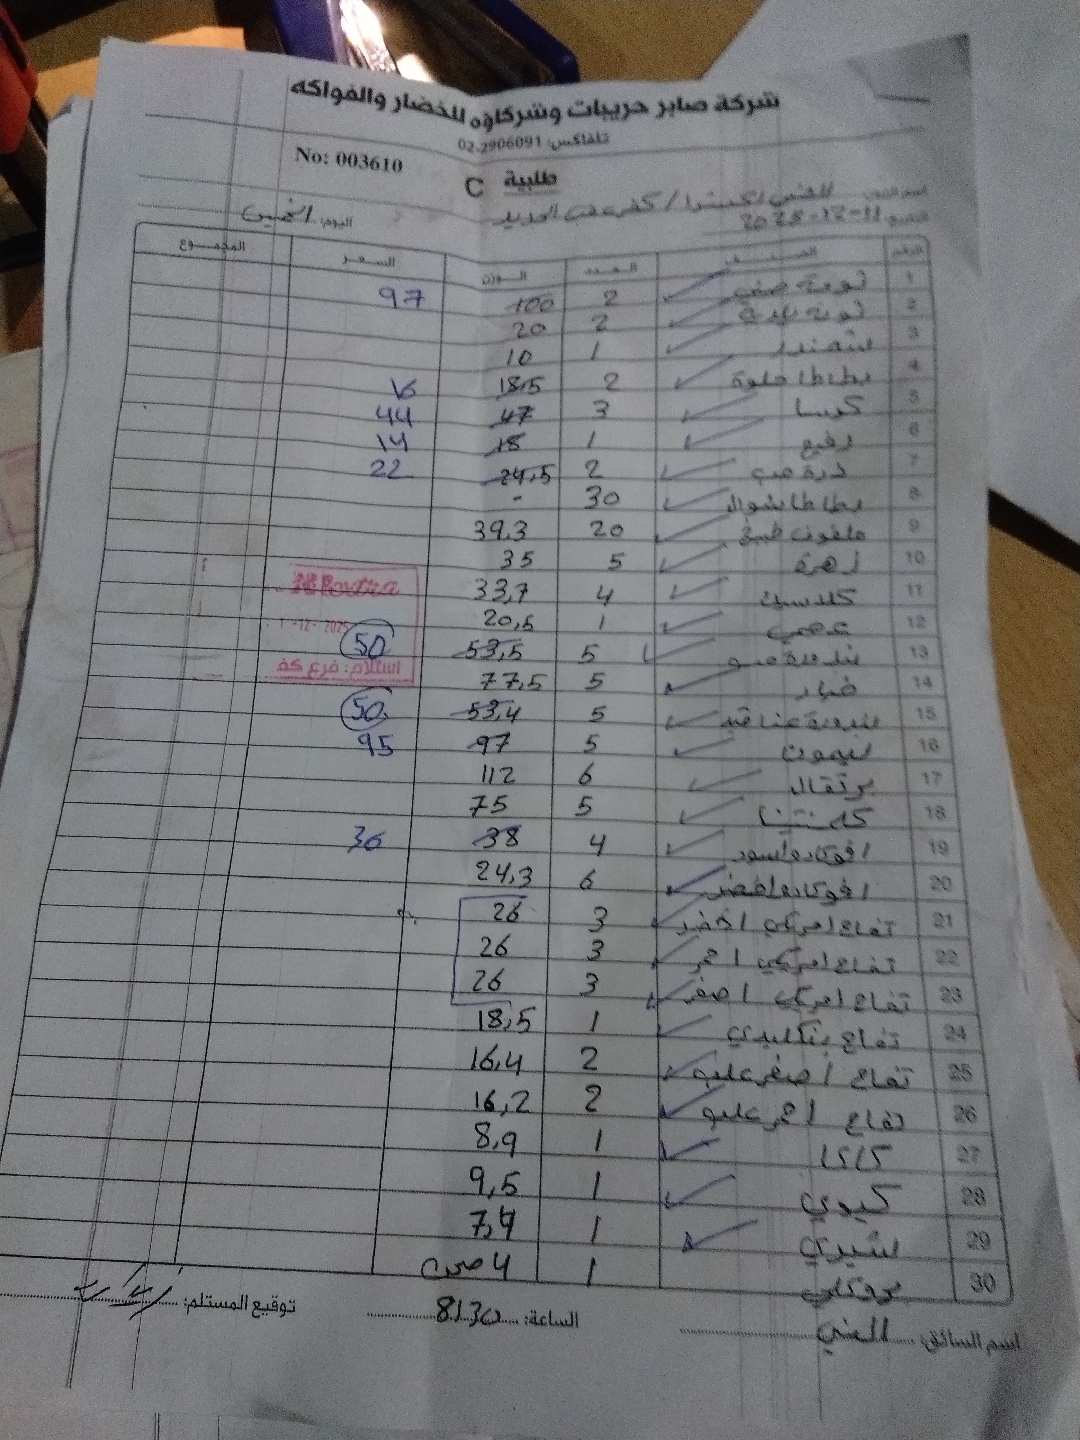 شركة صابر حريبات وشركاؤه للخضار والفواكه
تلفاكس: 02-2906091
No: 003610
طلبية C
اسم الزبون: كفر عقب الجديد
التاريخ: 2025-12-11 اليوم: الخميس
الرقم الصنف العدد الوزن السعر المجموع
1 ثومة صيني 2 100 97
2 ثومة بلدية 2 20
3 شمندر 1 10
4 بطاطا حلوة 2 18.5 16
5 كوسا 3 47 44
6 رفيع 1 18 14
7 ذرة حب 2 24,5 22
8 بطاطا شوال 30 -
9 ملفوف طبيخ 20 39.3
10 زهرة 5 35
11 كلاسيك 4 33,7
12 عجمي 1 20,5
13 بندورة 5 53,5 50
14 خيار 5 77,5
15 بندورة عناقيد 5 53,4 50
16 ليمون 5 97 95
17 برتقال 6 112
18 كلمنتينا 5 75
19 افوكادو اسود 4 38 36
20 افوكادو اخضر 6 24,3
21 تفاح امريكي اخضر 3 26
22 تفاح امريكي احمر 3 26
23 تفاح امريكي اصفر 3 26
24 تفاح بنكليدي 1 18,5
25 تفاح اصفر عليو 2 16,4
26 تفاح احمر عليو 2 16,2
27 كاكا 1 8,9
28 كيوي 1 9,5
29 شيري 1 7,4
30 بروكلي 1 4 صحن
استلام: فرع كف
اسم السائق: الساعة: 8:30 توقيع المستلم: